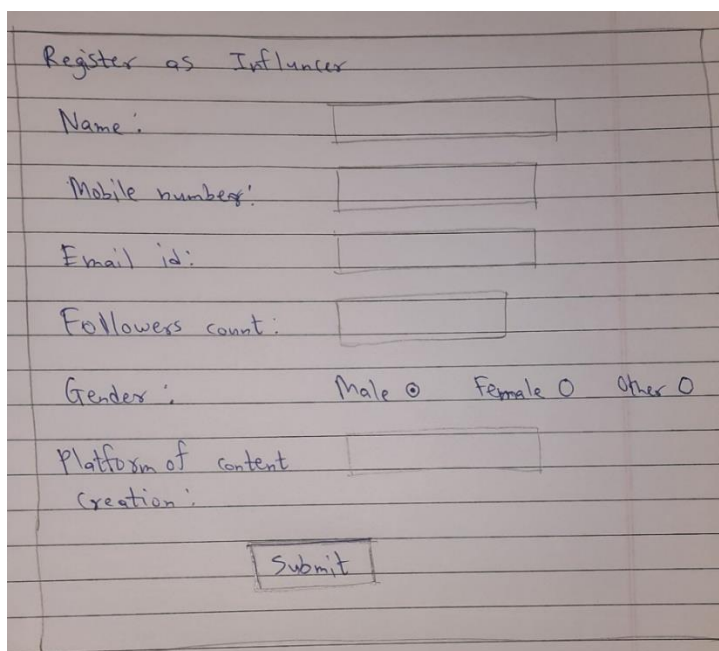 Register as Influncer
Name :
Mobile number:
Email id:
Followers count :
Gender : Male Female Other
Platform of content
Creation :
Submit